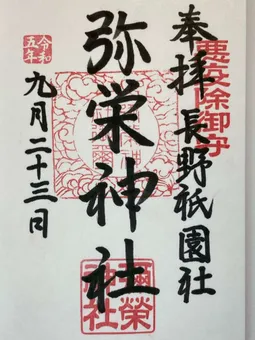 奉拝 長野祇園社
悪疫除御守
弥栄神社
彌榮神社
令和五年
九月二十三日